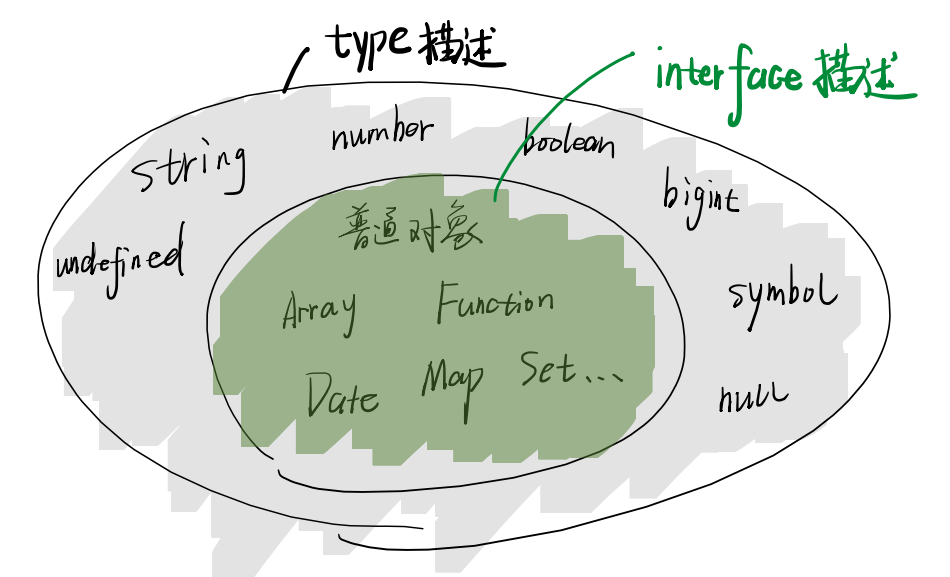 type 描述
interface 描述
string
number
boolean
bigint
undefined
普通对象
symbol
Array
Function
Date
Map
Set...
null